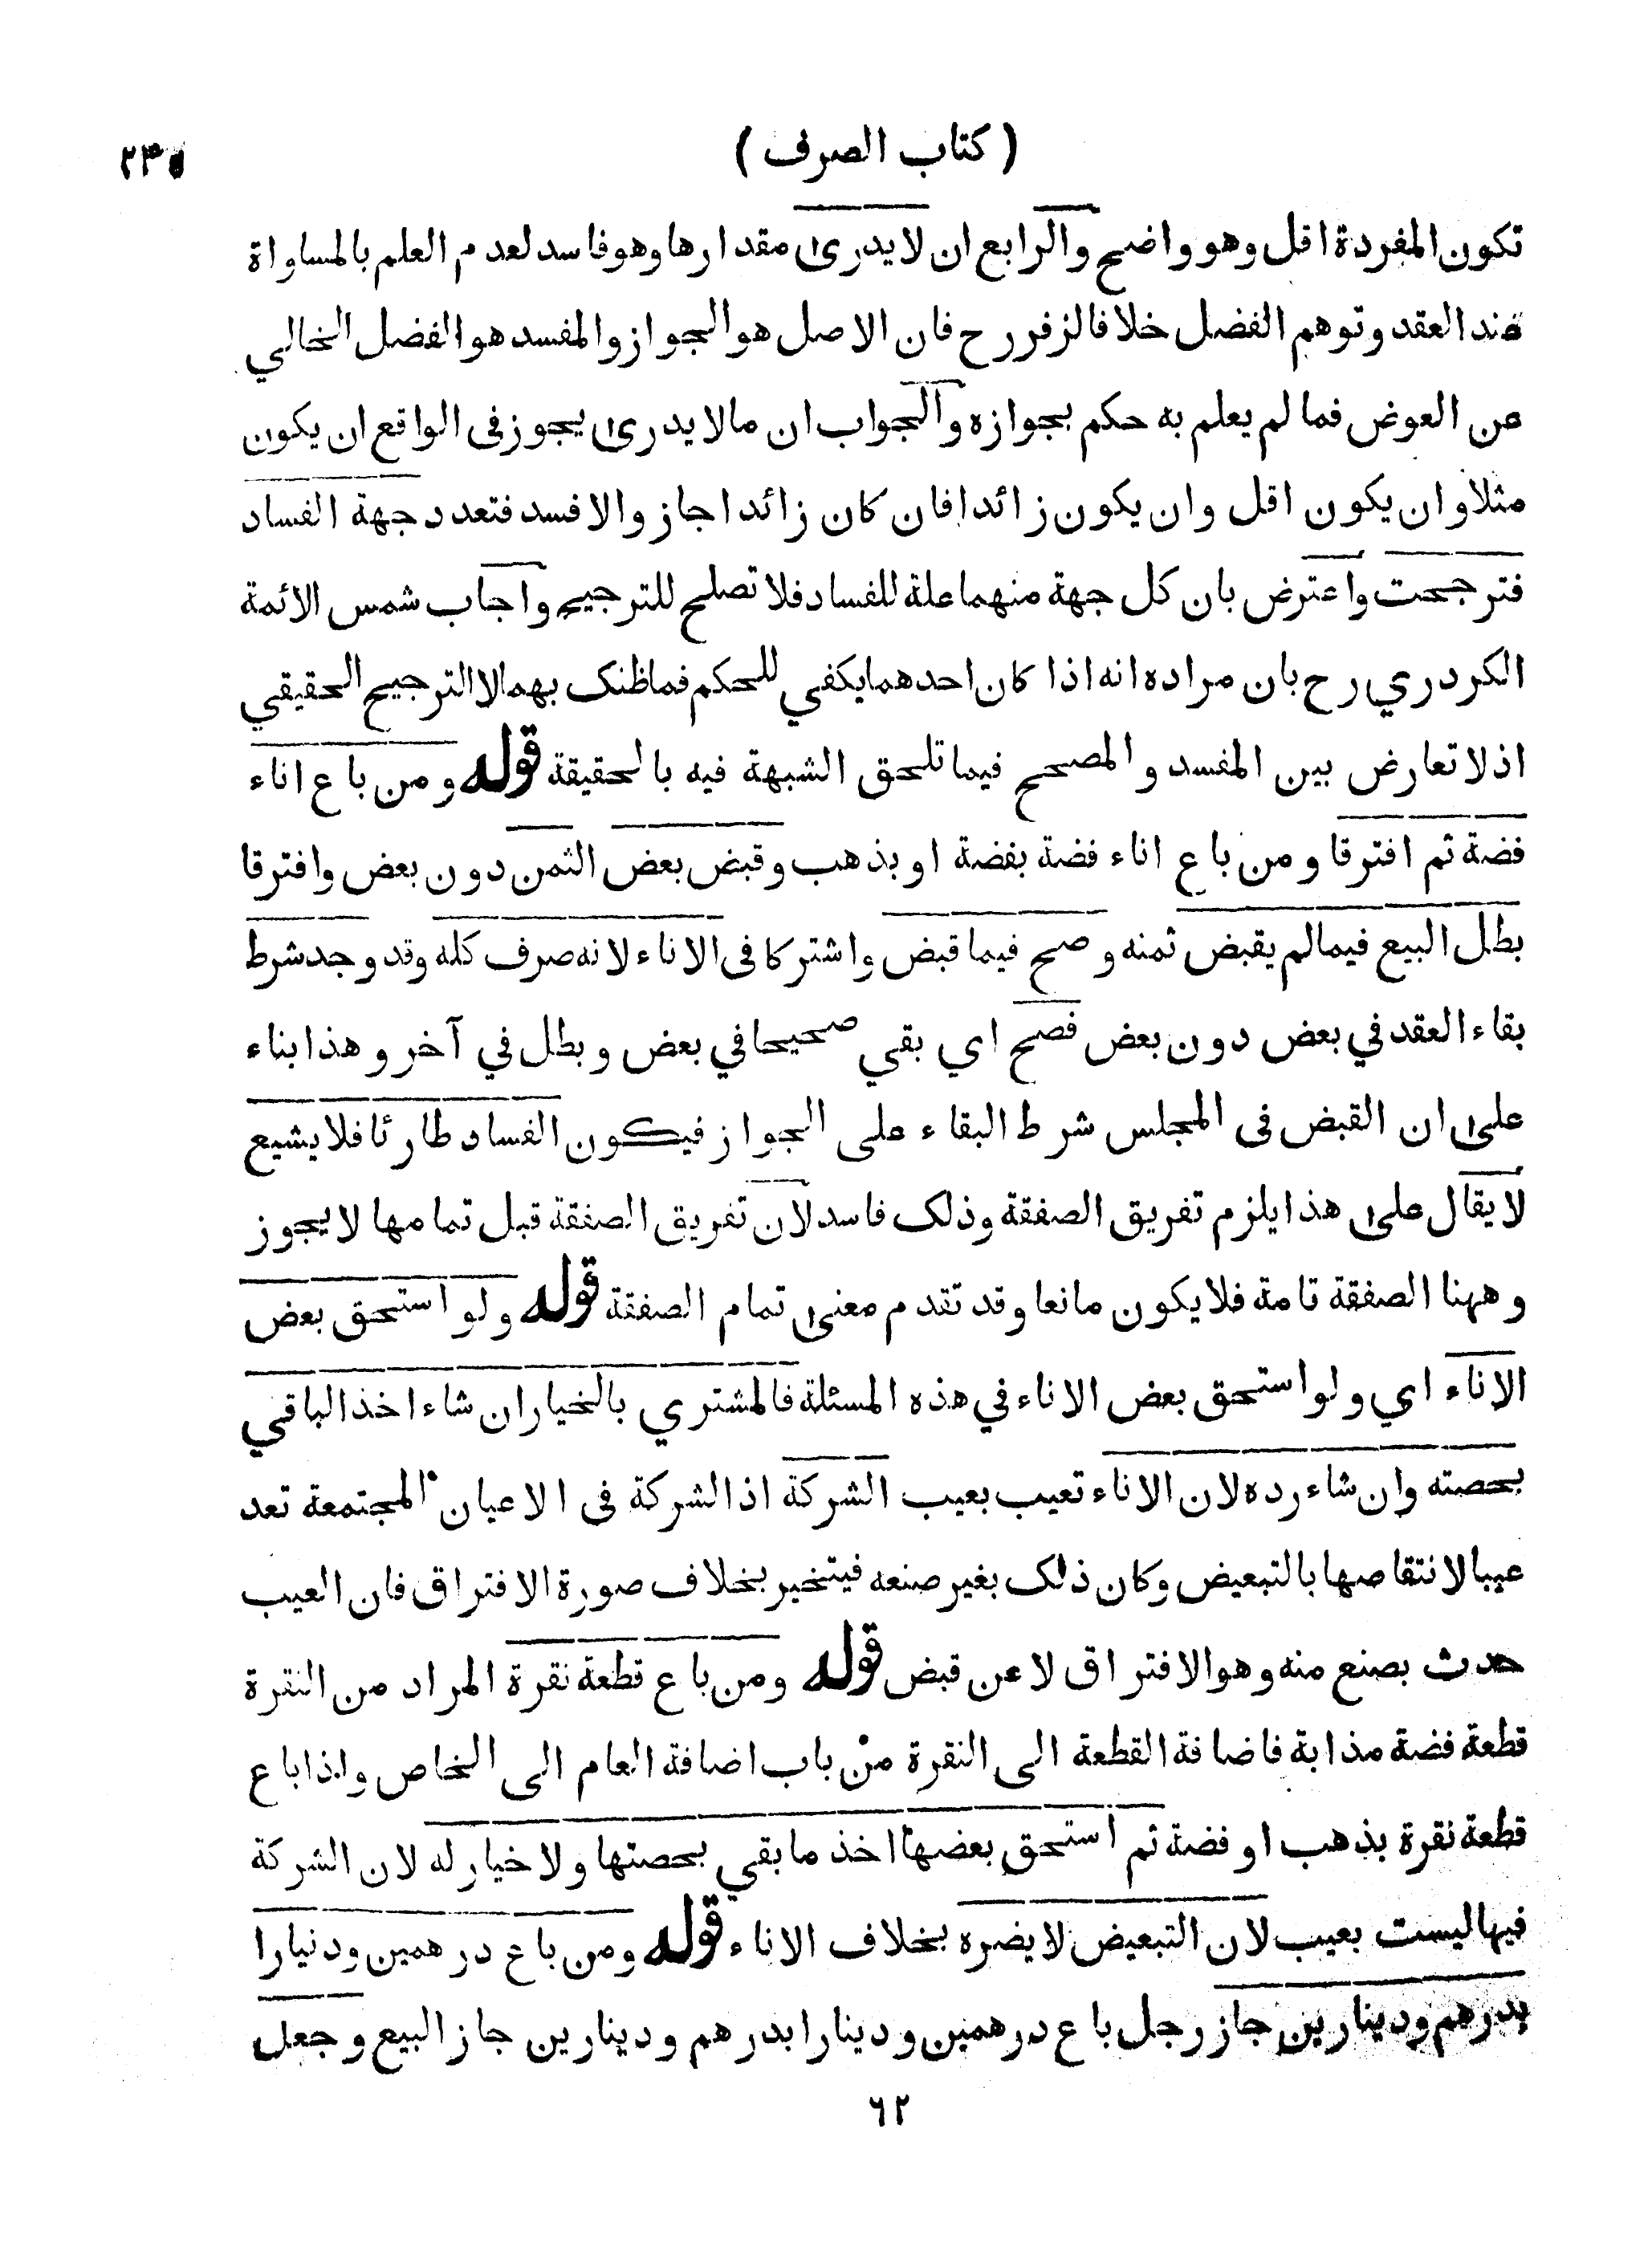 ( كتاب الصرف )
٢٣٥
تكون المفردة اقل وهو واضح والرابع ان لا يدرى مقدارها وهو فاسد لعدم العلم بالمساواة
عند العقد وتوهم الفضل خلافا لزفر رح فان الاصل هو الجواز والمفسد هو الفضل الخالي
عن العوض فما لم يعلم به حكم بجوازه والجواب ان ما لا يدرى يجوز فى الواقع ان يكون
مثلا وان يكون اقل وان يكون زائدا فان كان زائدا جاز والا فسد فتعدد جهة الفساد
فترجحت واعترض بان كل جهة منهما علة للفساد فلا تصلح للترجيح واجاب شمس الائمة
الكردري رح بان مراده انه اذا كان احدهما يكفي للحكم فما ظنك بهما لا الترجيح الحقيقي
اذ لا تعارض بين المفسد والمصحح فيما تلحق الشبهة فيه بالحقيقة قوله ومن باع اناء
فضة ثم افترقا ومن باع اناء فضة بفضة او بذهب وقبض بعض الثمن دون بعض وافترقا
بطل البيع فيما لم يقبض ثمنه وصح فيما قبض واشتركا فى الاناء لانه صرف كله وقد وجد شرط
بقاء العقد في بعض دون بعض فصح اي بقي صحيحا في بعض وبطل في آخر وهذا بناء
على ان القبض فى المجلس شرط البقاء على الجواز فيكون الفساد طارئا فلا يشيع
لا يقال على هذا يلزم تفريق الصفقة وذلك فاسد لان تفريق الصفقة قبل تمامها لا يجوز
وههنا الصفقة تامة فلا يكون مانعا وقد تقدم معنى تمام الصفقة قوله ولو استحق بعض
الاناء اي ولو استحق بعض الاناء في هذه المسئلة فالمشتري بالخيار ان شاء اخذ الباقي
بحصته وان شاء رده لان الاناء تعيب بعيب الشركة اذ الشركة فى الاعيان المجتمعة تعد
عيبا لانتقاصها بالتبعيض وكان ذلك بغير صنعه فيتخير بخلاف صورة الافتراق فان العيب
حدث بصنع منه وهو الافتراق لا عن قبض قوله ومن باع قطعة نقرة المراد من النقرة
قطعة فضة مذابة فاضافة القطعة الى النقرة من باب اضافة العام الى الخاص واذا باع
قطعة نقرة بذهب او فضة ثم استحق بعضها اخذ ما بقي بحصتها ولا خيار له لان الشركة
فيها ليست بعيب لان التبعيض لا يضره بخلاف الاناء قوله ومن باع درهمين ودنيارا
بدرهم ودينارين جاز رجل باع درهمين ودينارا بدرهم ودينارين جاز البيع وجعل
٦٢